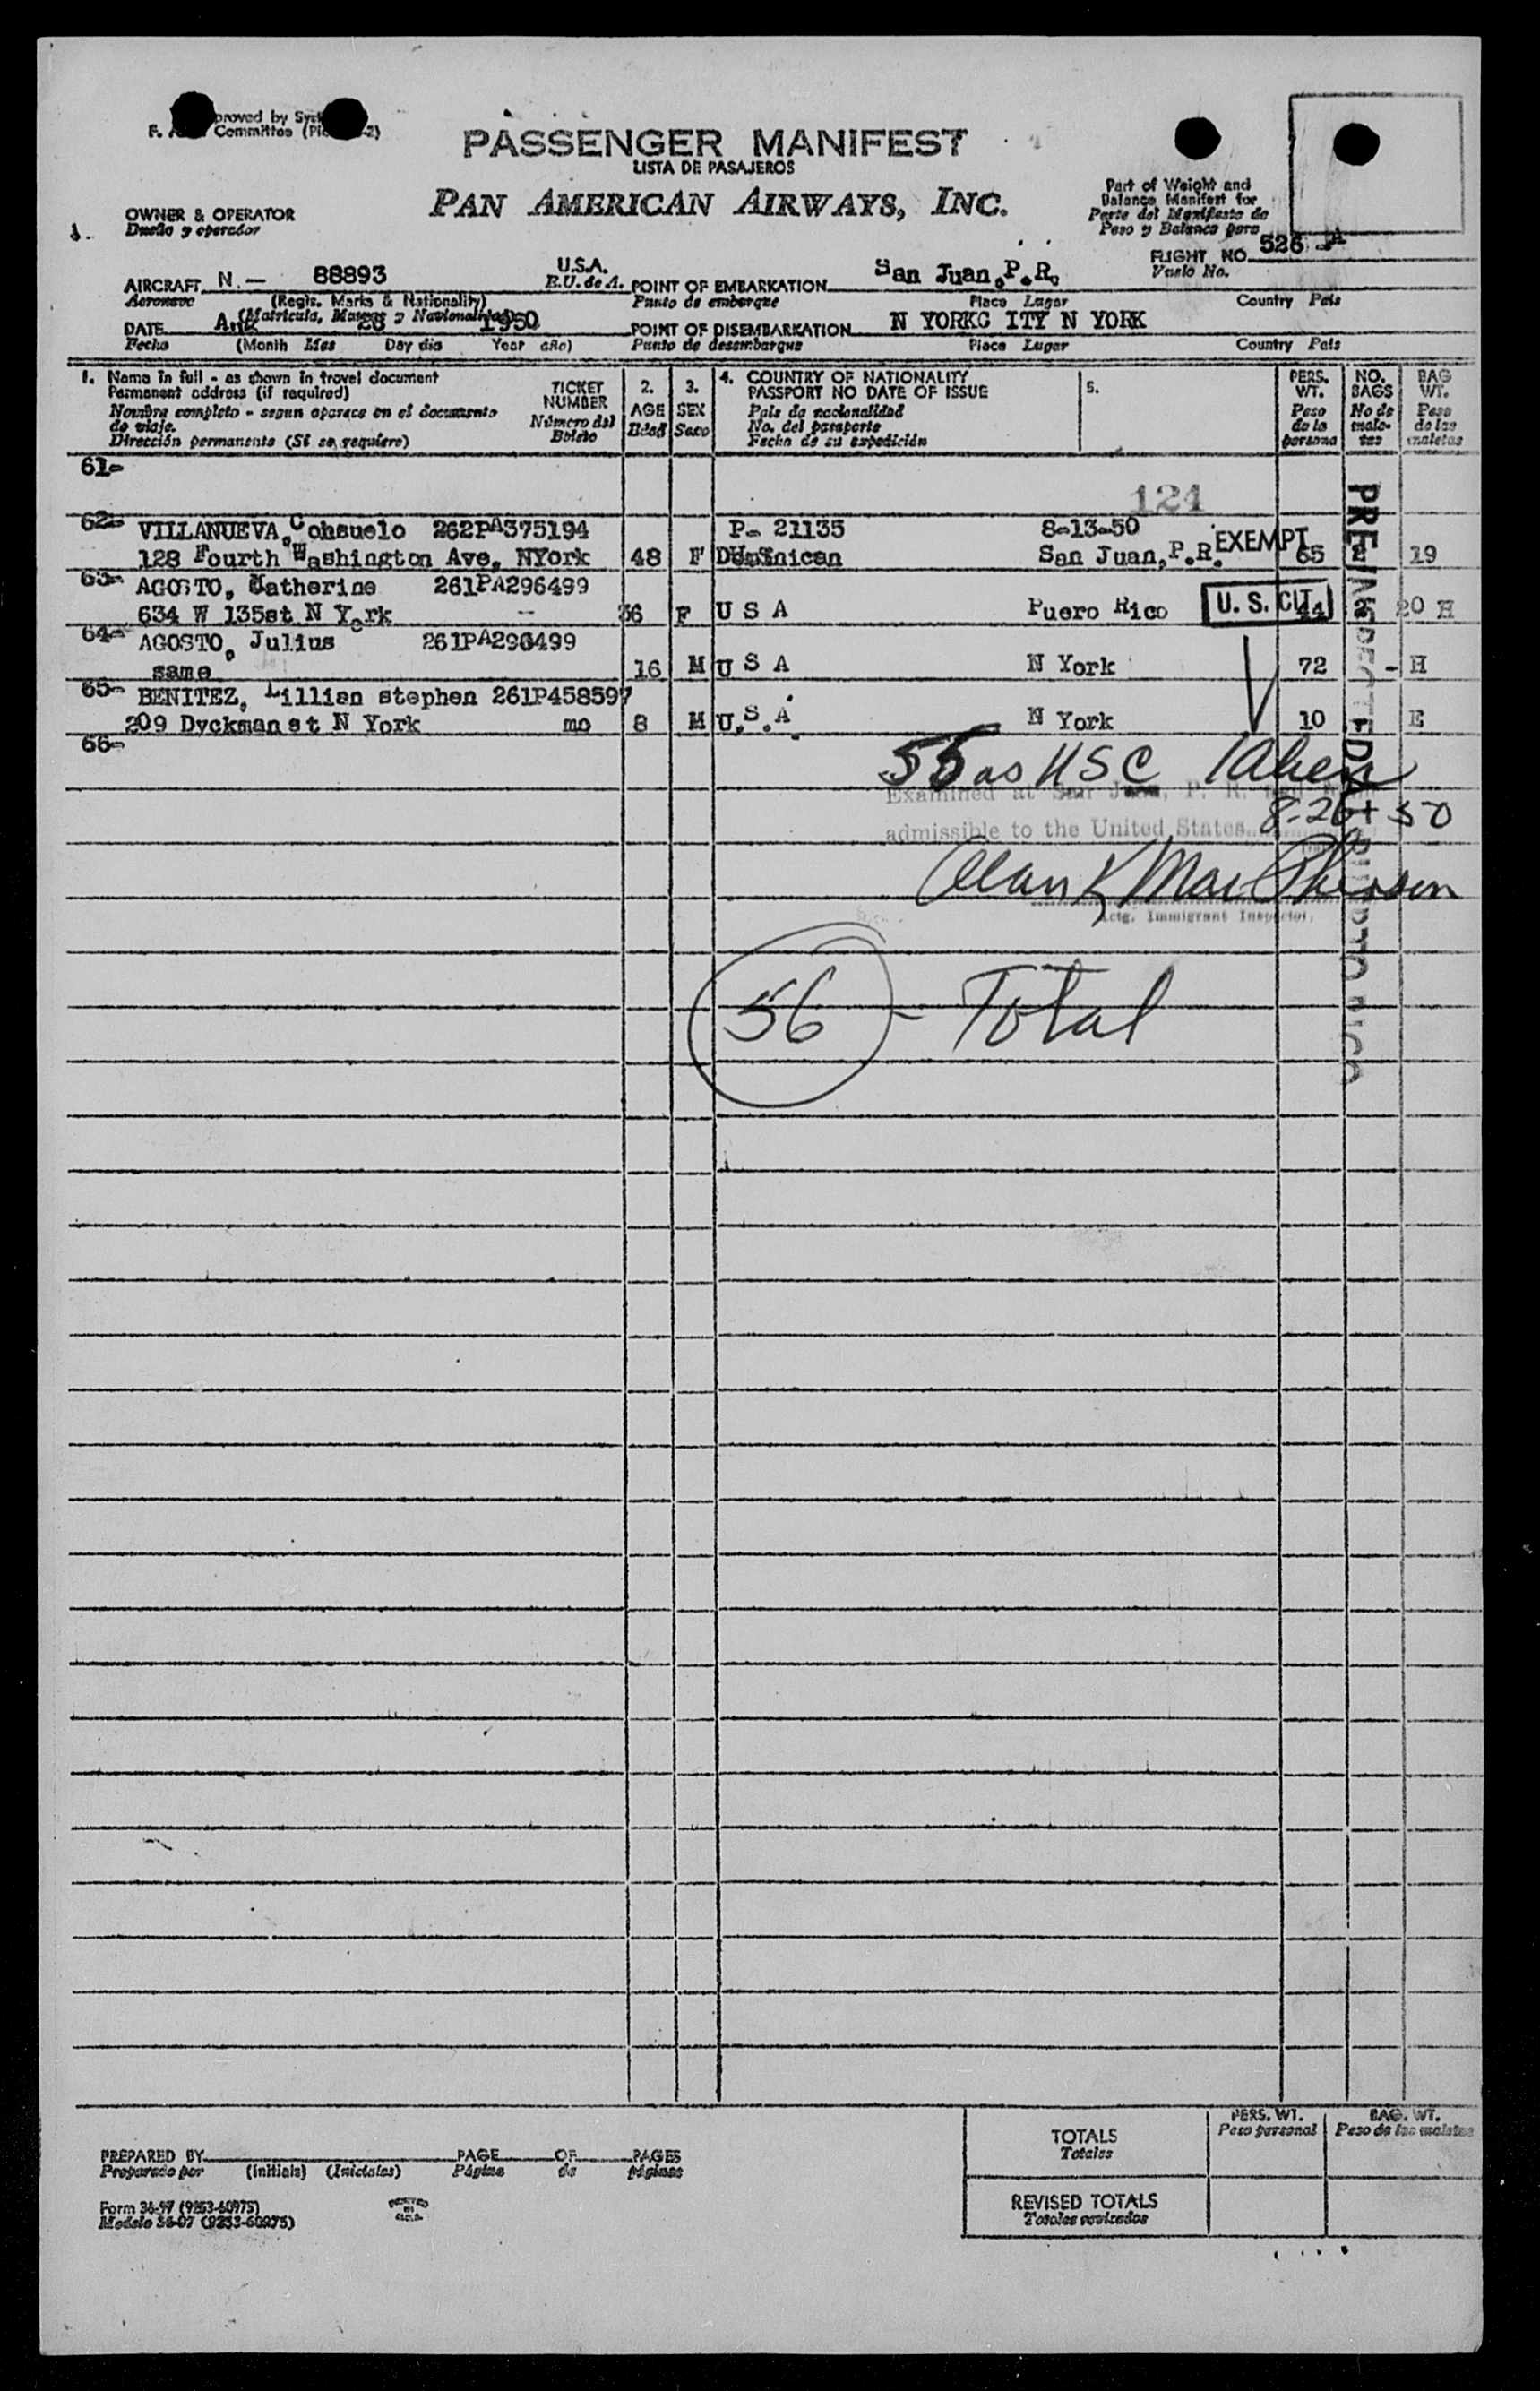 PASSENGER MANIFEST
LISTA DE PASAJEROS
PAN AMERICAN AIRWAYS, INC.
Part of Weight and
Balance Manifest for
Parte del Manifiesto de
Peso y Balance para
OWNER & OPERATOR
Dueño y operador
FLIGHT NO. 526 -A
Vuelo No.
AIRCRAFT N - 88893 U.S.A. POINT OF EMBARKATION San Juan, P.R.
Aeronave (Regis. Marks & Nationality) E.U. de A. Punto de embarque Place Lugar Country Pais
DATE Aug 26 1950 POINT OF DISEMBARKATION N YORKC ITY N YORK
Fecha (Month Mes Day dia Year año) Punto de desembarque Place Lugar Country Pais
1. Name in full - as shown in travel document
Permanent address (if required)
Nombre completo - segun aparece en el documento
de viaje.
Dirección permanente (Si se requiere)
TICKET
NUMBER
Número del
Boleto
2.
AGE
Edad
3.
SEX
Sexo
4. COUNTRY OF NATIONALITY
PASSPORT NO DATE OF ISSUE
Pais de nacionalidad
No. del pasaporte
Fecha de su expedición
5.
PERS.
WT.
Peso
de la
persona
NO.
BAGS
No de
male-
tas
BAG
WT.
Peso
de las
maletas
61-
124
62- VILLANUEVA, Consuelo 262PA375194 P- 21135 8-13-50
128 Fourth Washington Ave, NYork 48 F Dominican San Juan, P.R. EXEMPT 65 2 19
63- AGOSTO, Catherine 261PA296499
634 W 135st N York -- 36 F U S A Puero Rico U. S. CIT. 44 2 20 H
64- AGOSTO, Julius 261PA296499
same 16 M U S A N York 72 - H
65- BENITEZ, Lillian stephen 261P458597
209 Dyckman st N York mo 8 M U.S.A. N York 10 E
66-
55 as USC Taken
Examined at San Juan, P. R. and
admissible to the United States
8-26-50
Alan K MacPherson
Actg. Immigrant Inspector.
PRE INSPECTED
56 - Total
PREPARED BY PAGE OF PAGES
Preparado por (Initials) (Iniciales) Página de páginas
Form 36-97 (9253-60975)
TOTALS
Totales
PERS. WT.
Peso personal
BAG. WT.
Peso de las maletas
REVISED TOTALS
Totales revisados